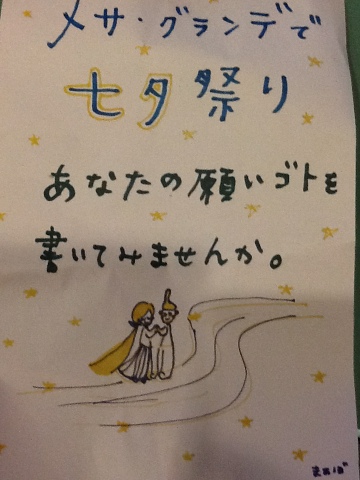 メサ・グランデで
七夕祭り
あなたの願いゴトを
書いてみませんか。